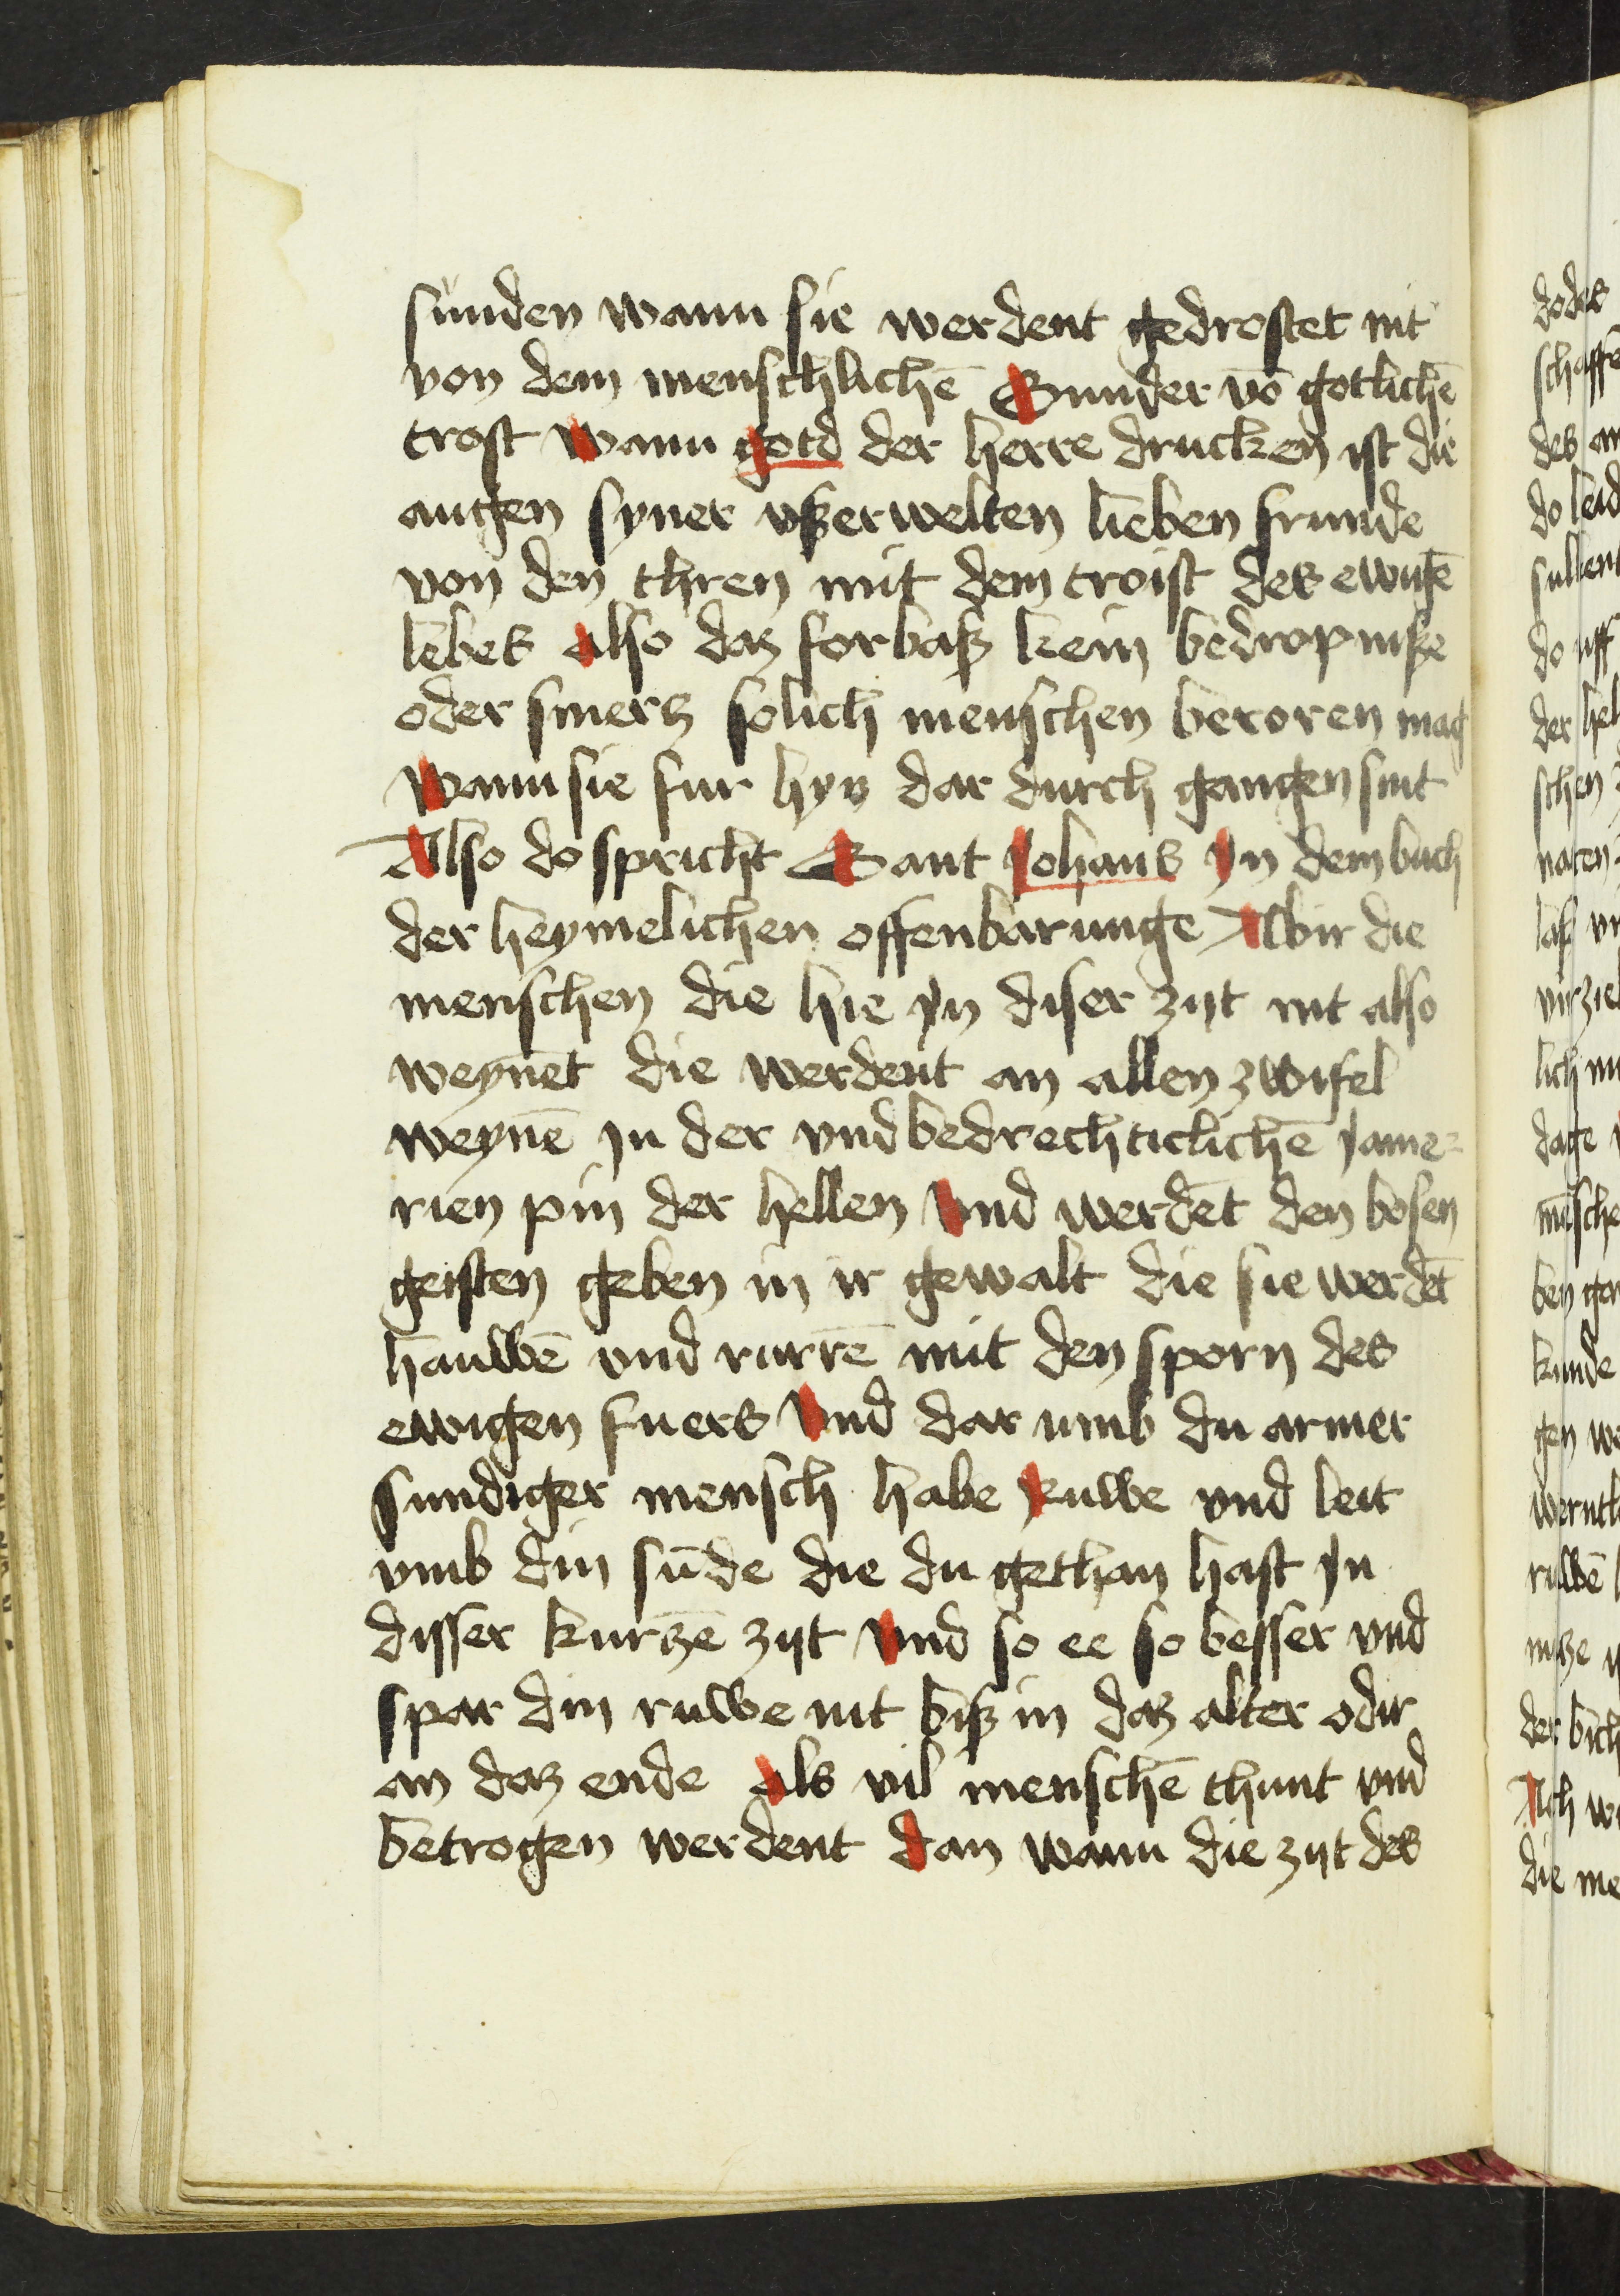 sunden wann sie werdent gedrostet nit
von dem menschlichē Sunder vō gotlichē
trost wann gotd der herre drucken ist die
augen syner vßerwelten lieben frunde
von den thren mit dem troist des ewigē
lebes also daz forbaß kein bedropniße
oder smerz solich menschen beroren mag
wann sie fur hyn dar durch gangen sint
Also do spricht Sant Johans Jn dem buch
der heymelichen offenbarunge Abir die
menschen die hie yn diser zijt nit also
weynēt die werdent an allen zwifel
weynē jn der vndbedrechticlichē jame⸗
rien pin der hellen vnd werdēt den bosen
geisten geben in ir gewalt die sie werdēt
hauwē vnd rurrē mit den sporn des
ewigen fuers vnd dar vmb du armer
sundiger mensch habe Ruwe vnd leit
vmb din sūde die du gethan hast yn
disser kurzē zijt vnd so ee so besser vnd
spar din ruwe nit biß in daz alter odir
an daz ende als vil menschē thunt vnd
betrogen werdent dan wann die zijt des
dodes
schaffe
des
do
do
der
schen
naren
laß
lich
dage
kunde
gen
ruwē
der
Ach
die